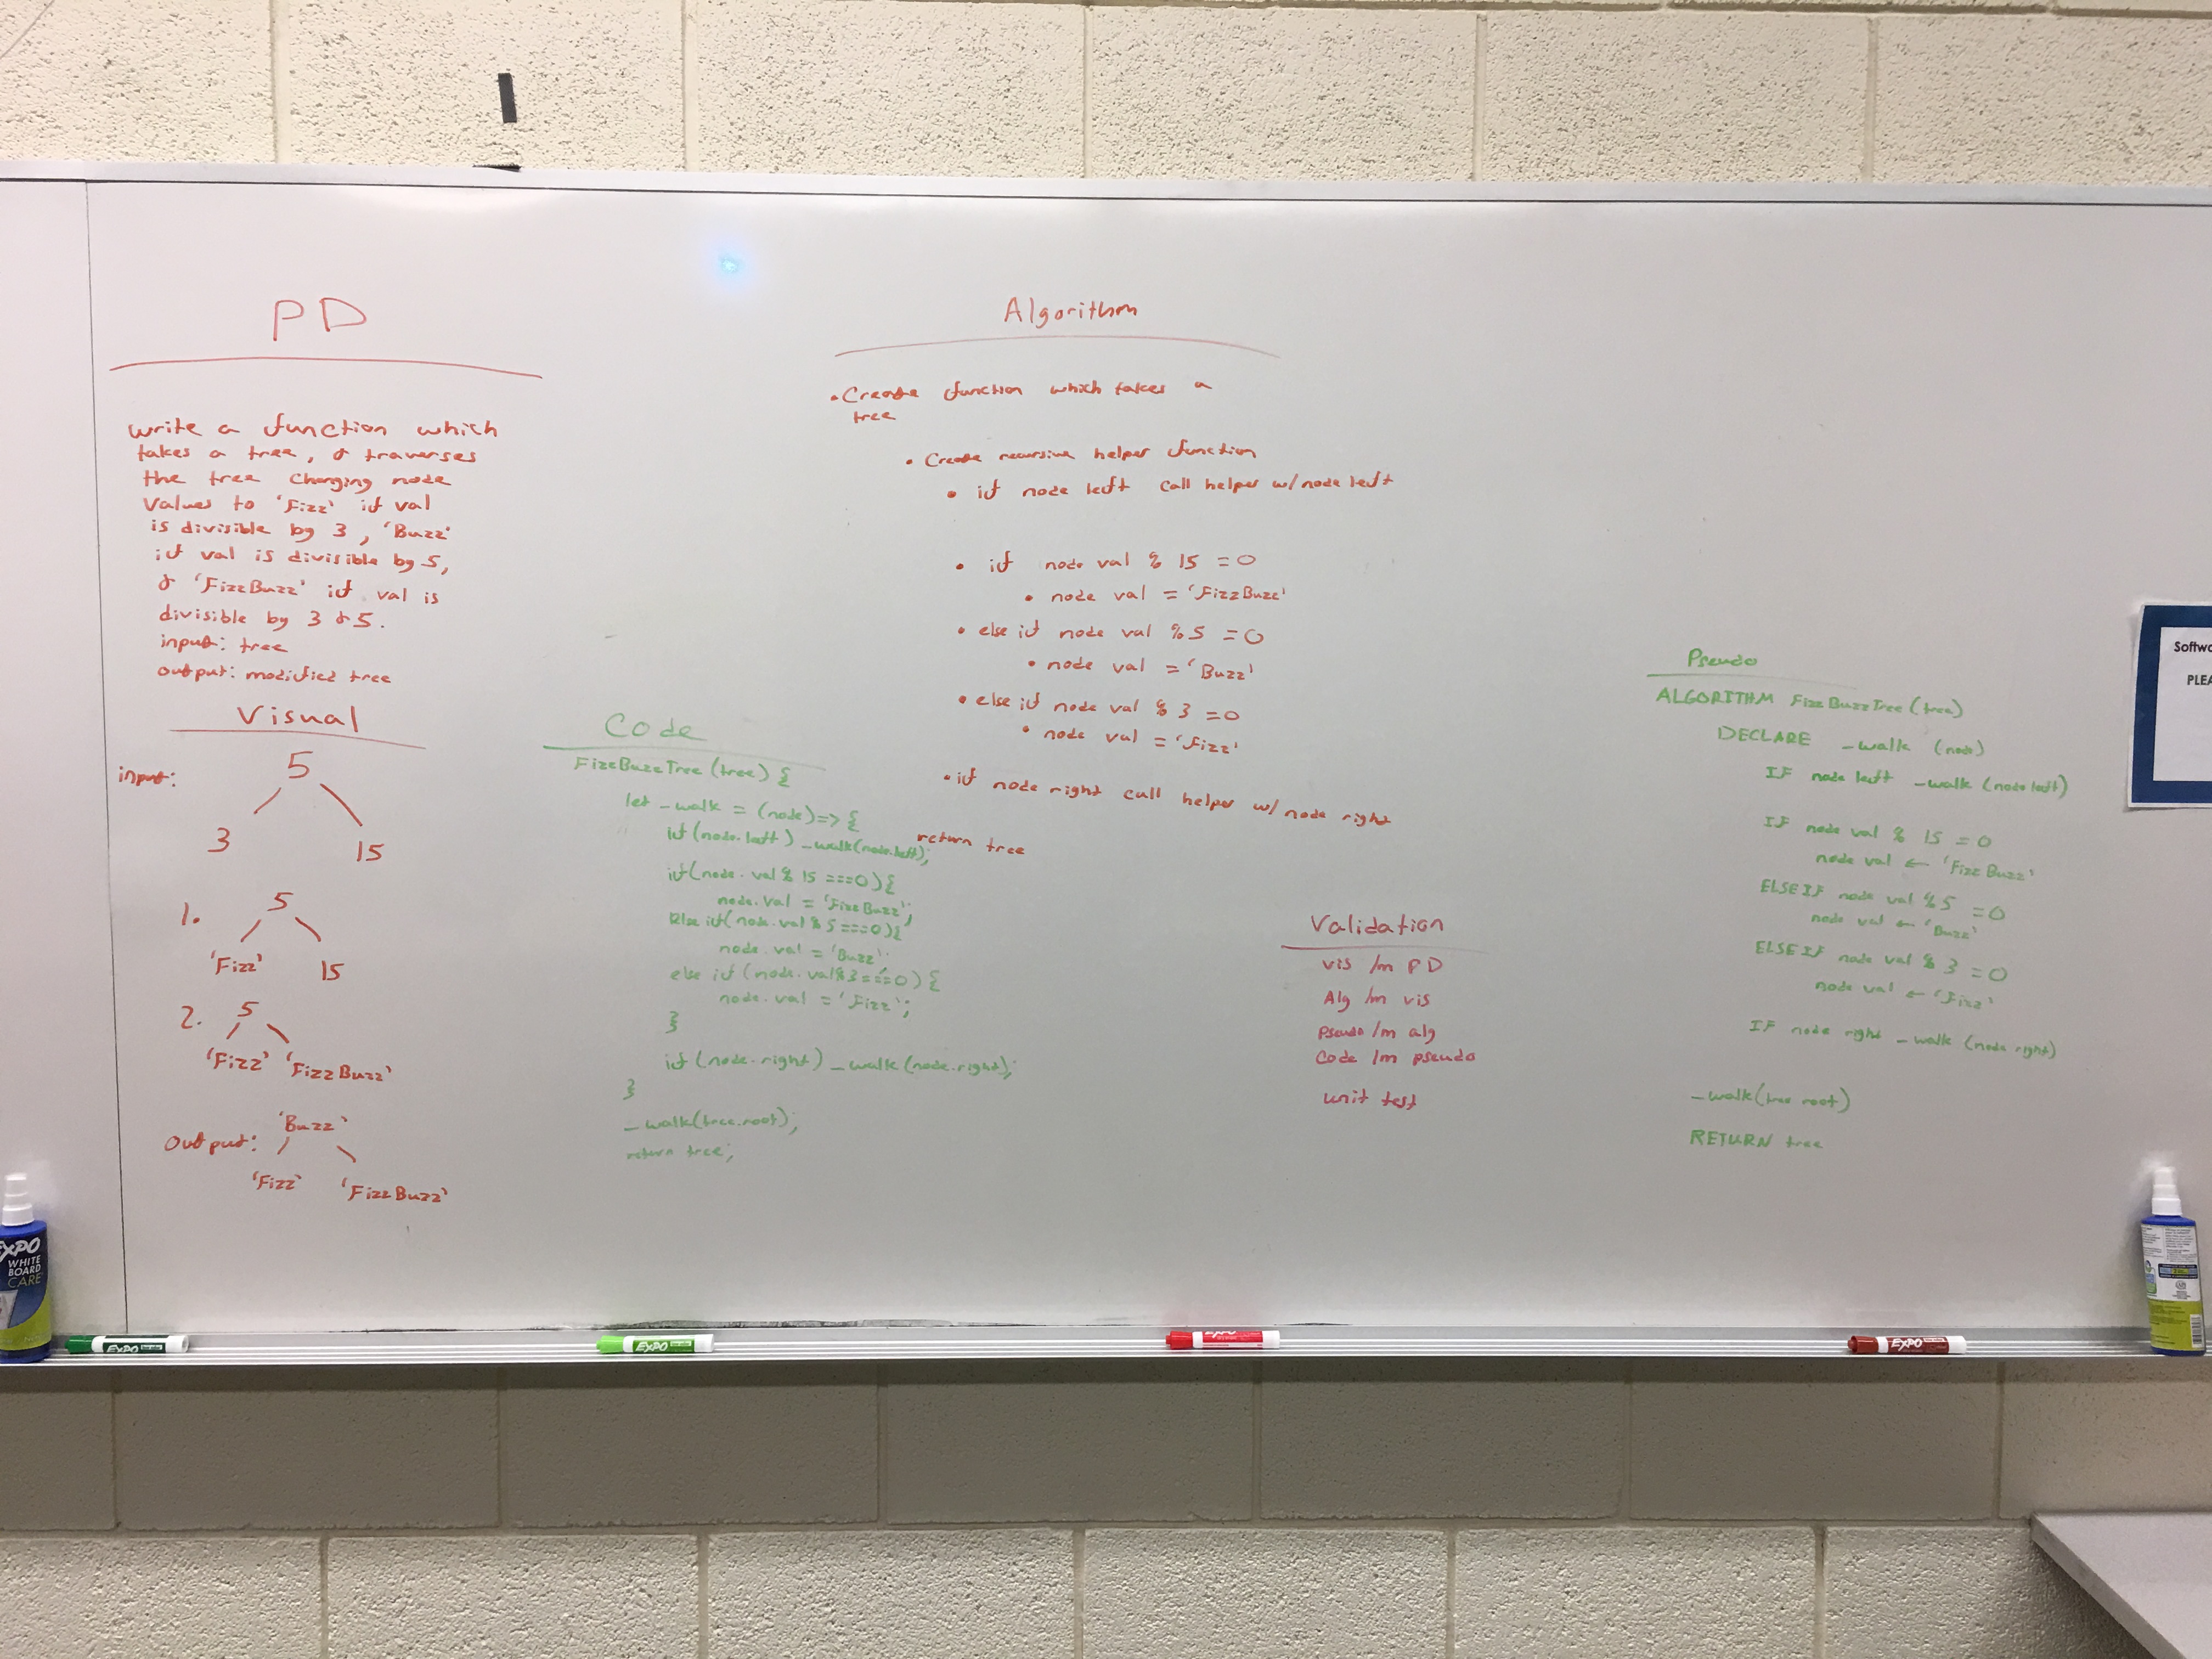 PD
write a function which
takes a tree, & traverses
the tree changing node
values to 'Fizz' if val
is divisible by 3, 'Buzz'
if val is divisible by 5,
& 'FizzBuzz' if val is
divisible by 3 & 5.
input: tree
output: modified tree
Visual
input:
5
3
15
1.
5
'Fizz'
15
2.
5
'Fizz' 'FizzBuzz'
output:
'Buzz'
'Fizz' 'FizzBuzz'
Code
FizzBuzzTree(tree) {
let _walk = (node)=> {
if(node.left) _walk(node.left);
if(node.val % 15 ===0){
node.val = 'FizzBuzz';
Else if(node.val % 5 ===0){
node.val = 'Buzz'
else if (node.val%3===0) {
node.val = 'Fizz';
}
if (node.right) _walk(node.right);
}
_walk(tree.root);
return tree;
Algorithm
• Create function which takes a
tree
• Create recursive helper function
• if node left call helper w/node left
• if node val % 15 =0
• node val = 'FizzBuzz'
• else if node val %5 =0
• node val = 'Buzz'
• else if node val % 3 =0
• node val = 'Fizz'
• if node right call helper w/ node right
return tree
Validation
vis /m PD
Alg /m vis
Pseudo /m alg
Code /m pseudo
unit test
Pseudo
ALGORITHM FizzBuzzTree(tree)
DECLARE _walk (node)
IF node left _walk (node left)
IF node val % 15 =0
node val ← 'FizzBuzz'
ELSEIF node val %5 =0
node val ← 'Buzz'
ELSEIF node val % 3 =0
node val ← 'Fizz'
IF node right _walk (node right)
_walk(tree root)
RETURN tree
Softwa
PLEA
EXPO
WHITE
BOARD
CARE
EXPO
EXPO
EXPO
EXPO